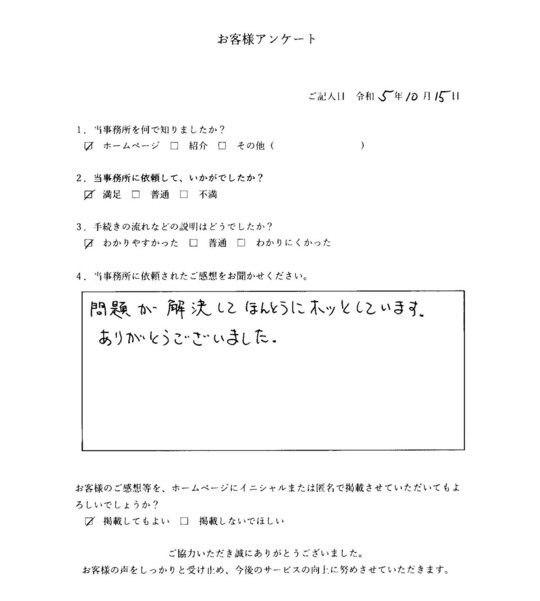 お客様アンケート
ご記入日　令和 5 年 10 月 15 日
1．当事務所を何で知りましたか？
☑ ホームページ　□ 紹介　□ その他（　　　　　　　　）
2．当事務所に依頼して、いかがでしたか？
☑ 満足　□ 普通　□ 不満
3．手続きの流れなどの説明はどうでしたか？
☑ わかりやすかった　□ 普通　□ わかりにくかった
4．当事務所に依頼されたご感想をお聞かせください。
問題が解決してほんとうにホッとしています。
ありがとうございました。
お客様のご感想等を、ホームページにイニシャルまたは匿名で掲載させていただいてもよ
ろしいでしょうか？
☑ 掲載してもよい　□ 掲載しないでほしい
ご協力いただき誠にありがとうございました。
お客様の声をしっかりと受け止め、今後のサービスの向上に努めさせていただきます。